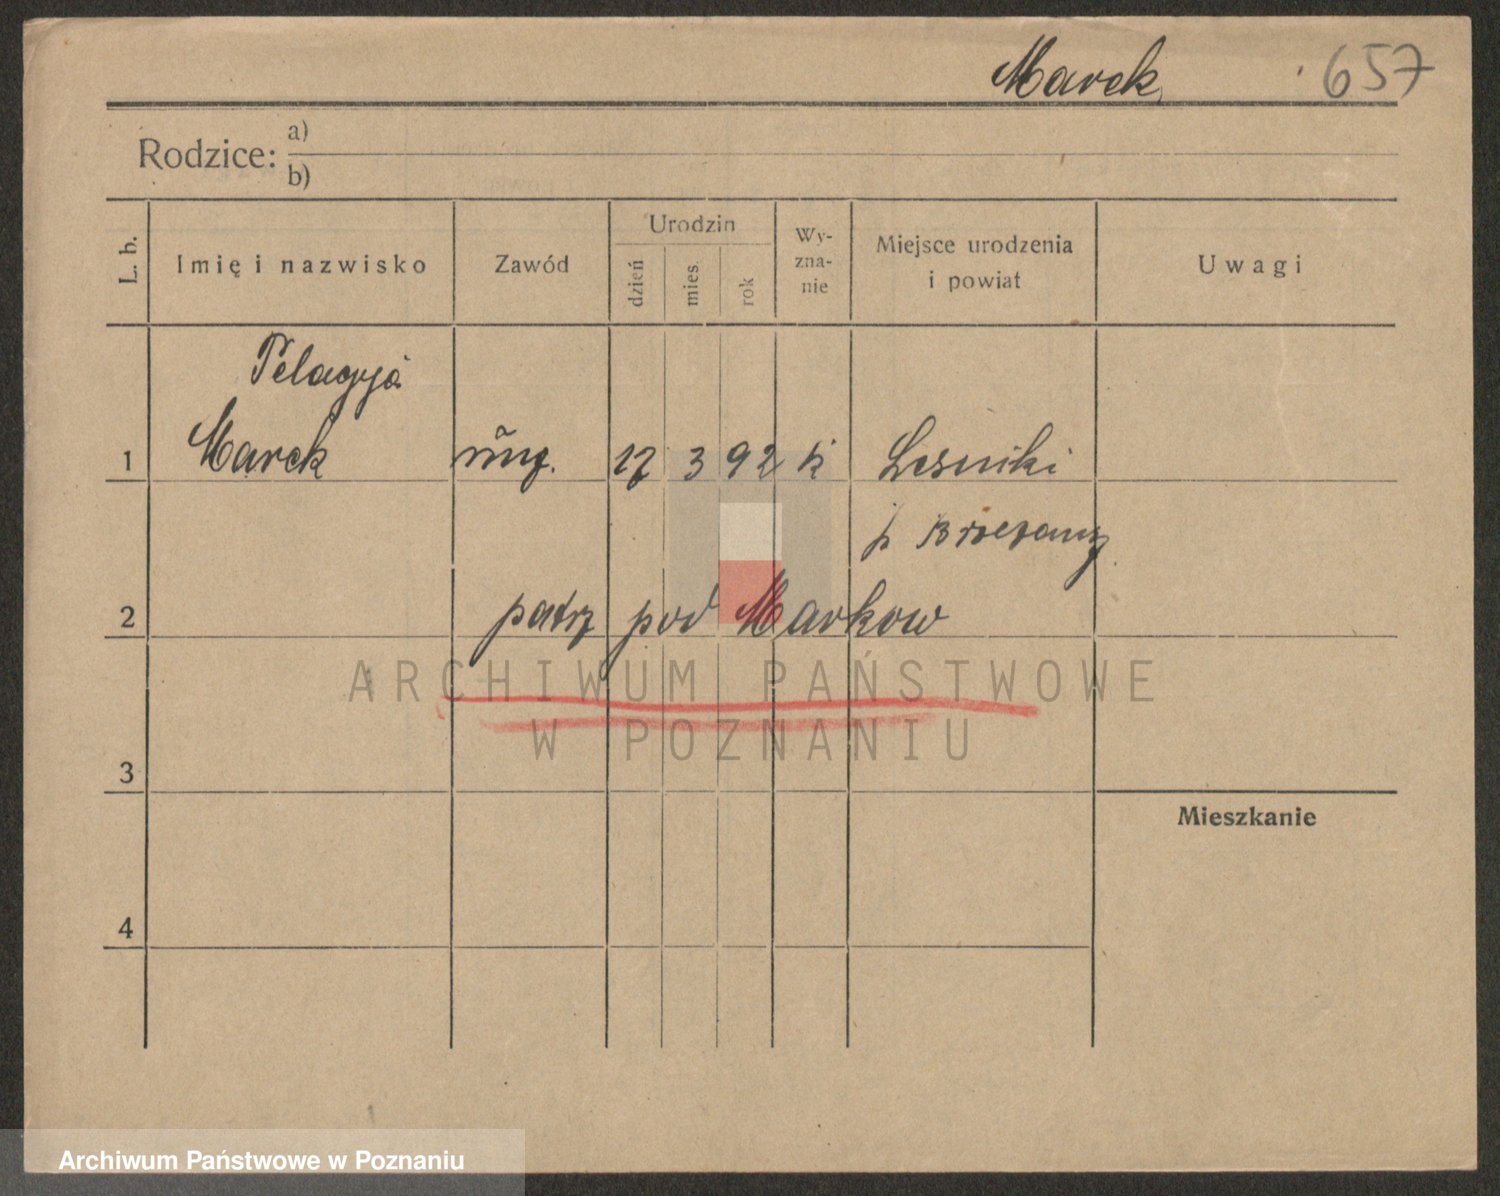 Marek
657
Rodzice: a)
b)
L. b.
Imię i nazwisko
Zawód
Urodzin
dzień
mies.
rok
Wy-
zna-
nie
Miejsce urodzenia
i powiat
Uwagi
Pelagyja
1 Marek 17 3 92 k Lesniki
p Brzezany
2 patrz pod Markow
ARCHIWUM PAŃSTWOWE
W POZNANIU
3
Mieszkanie
4
Archiwum Państwowe w Poznaniu